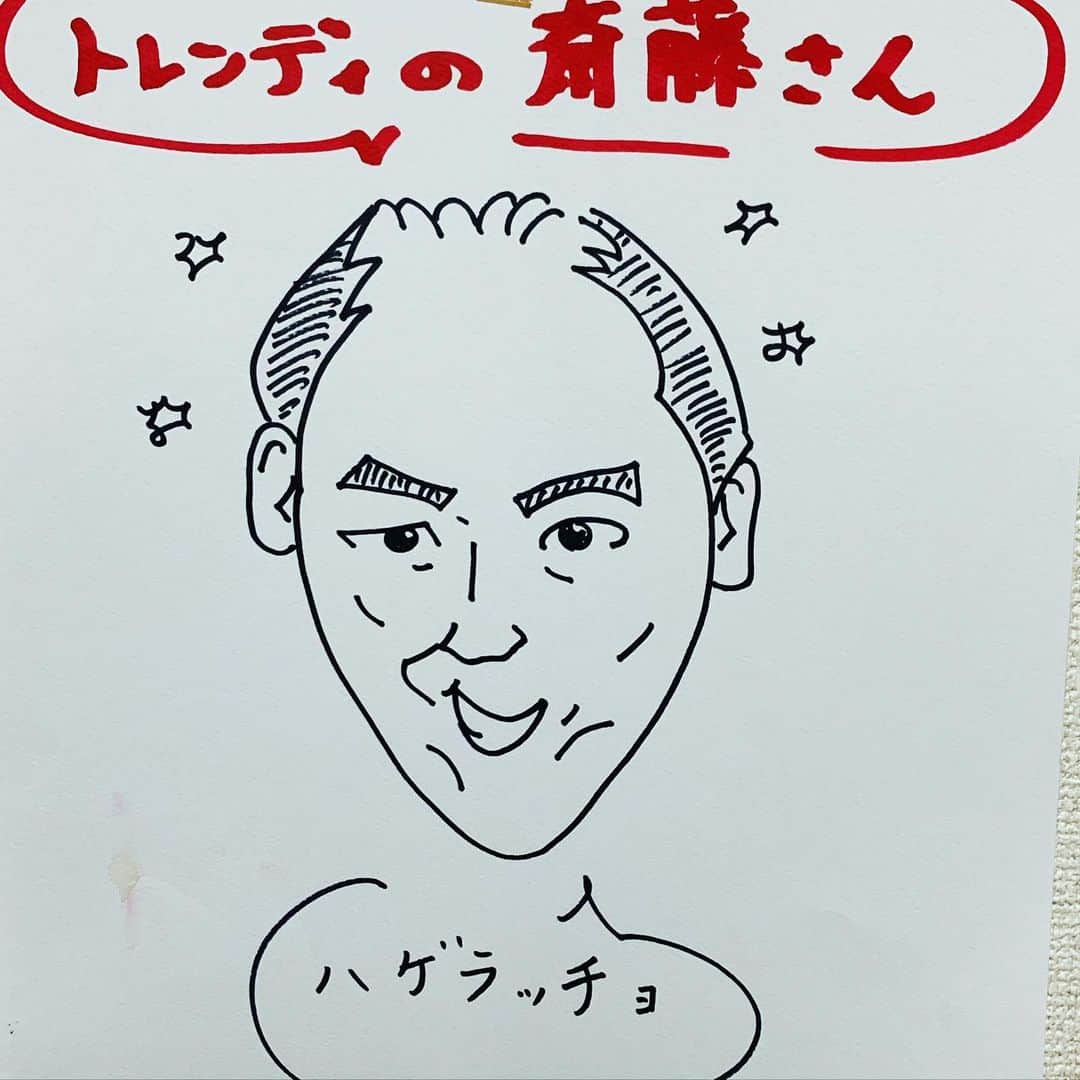 トレンディの斎藤さん
ハゲラッチョ